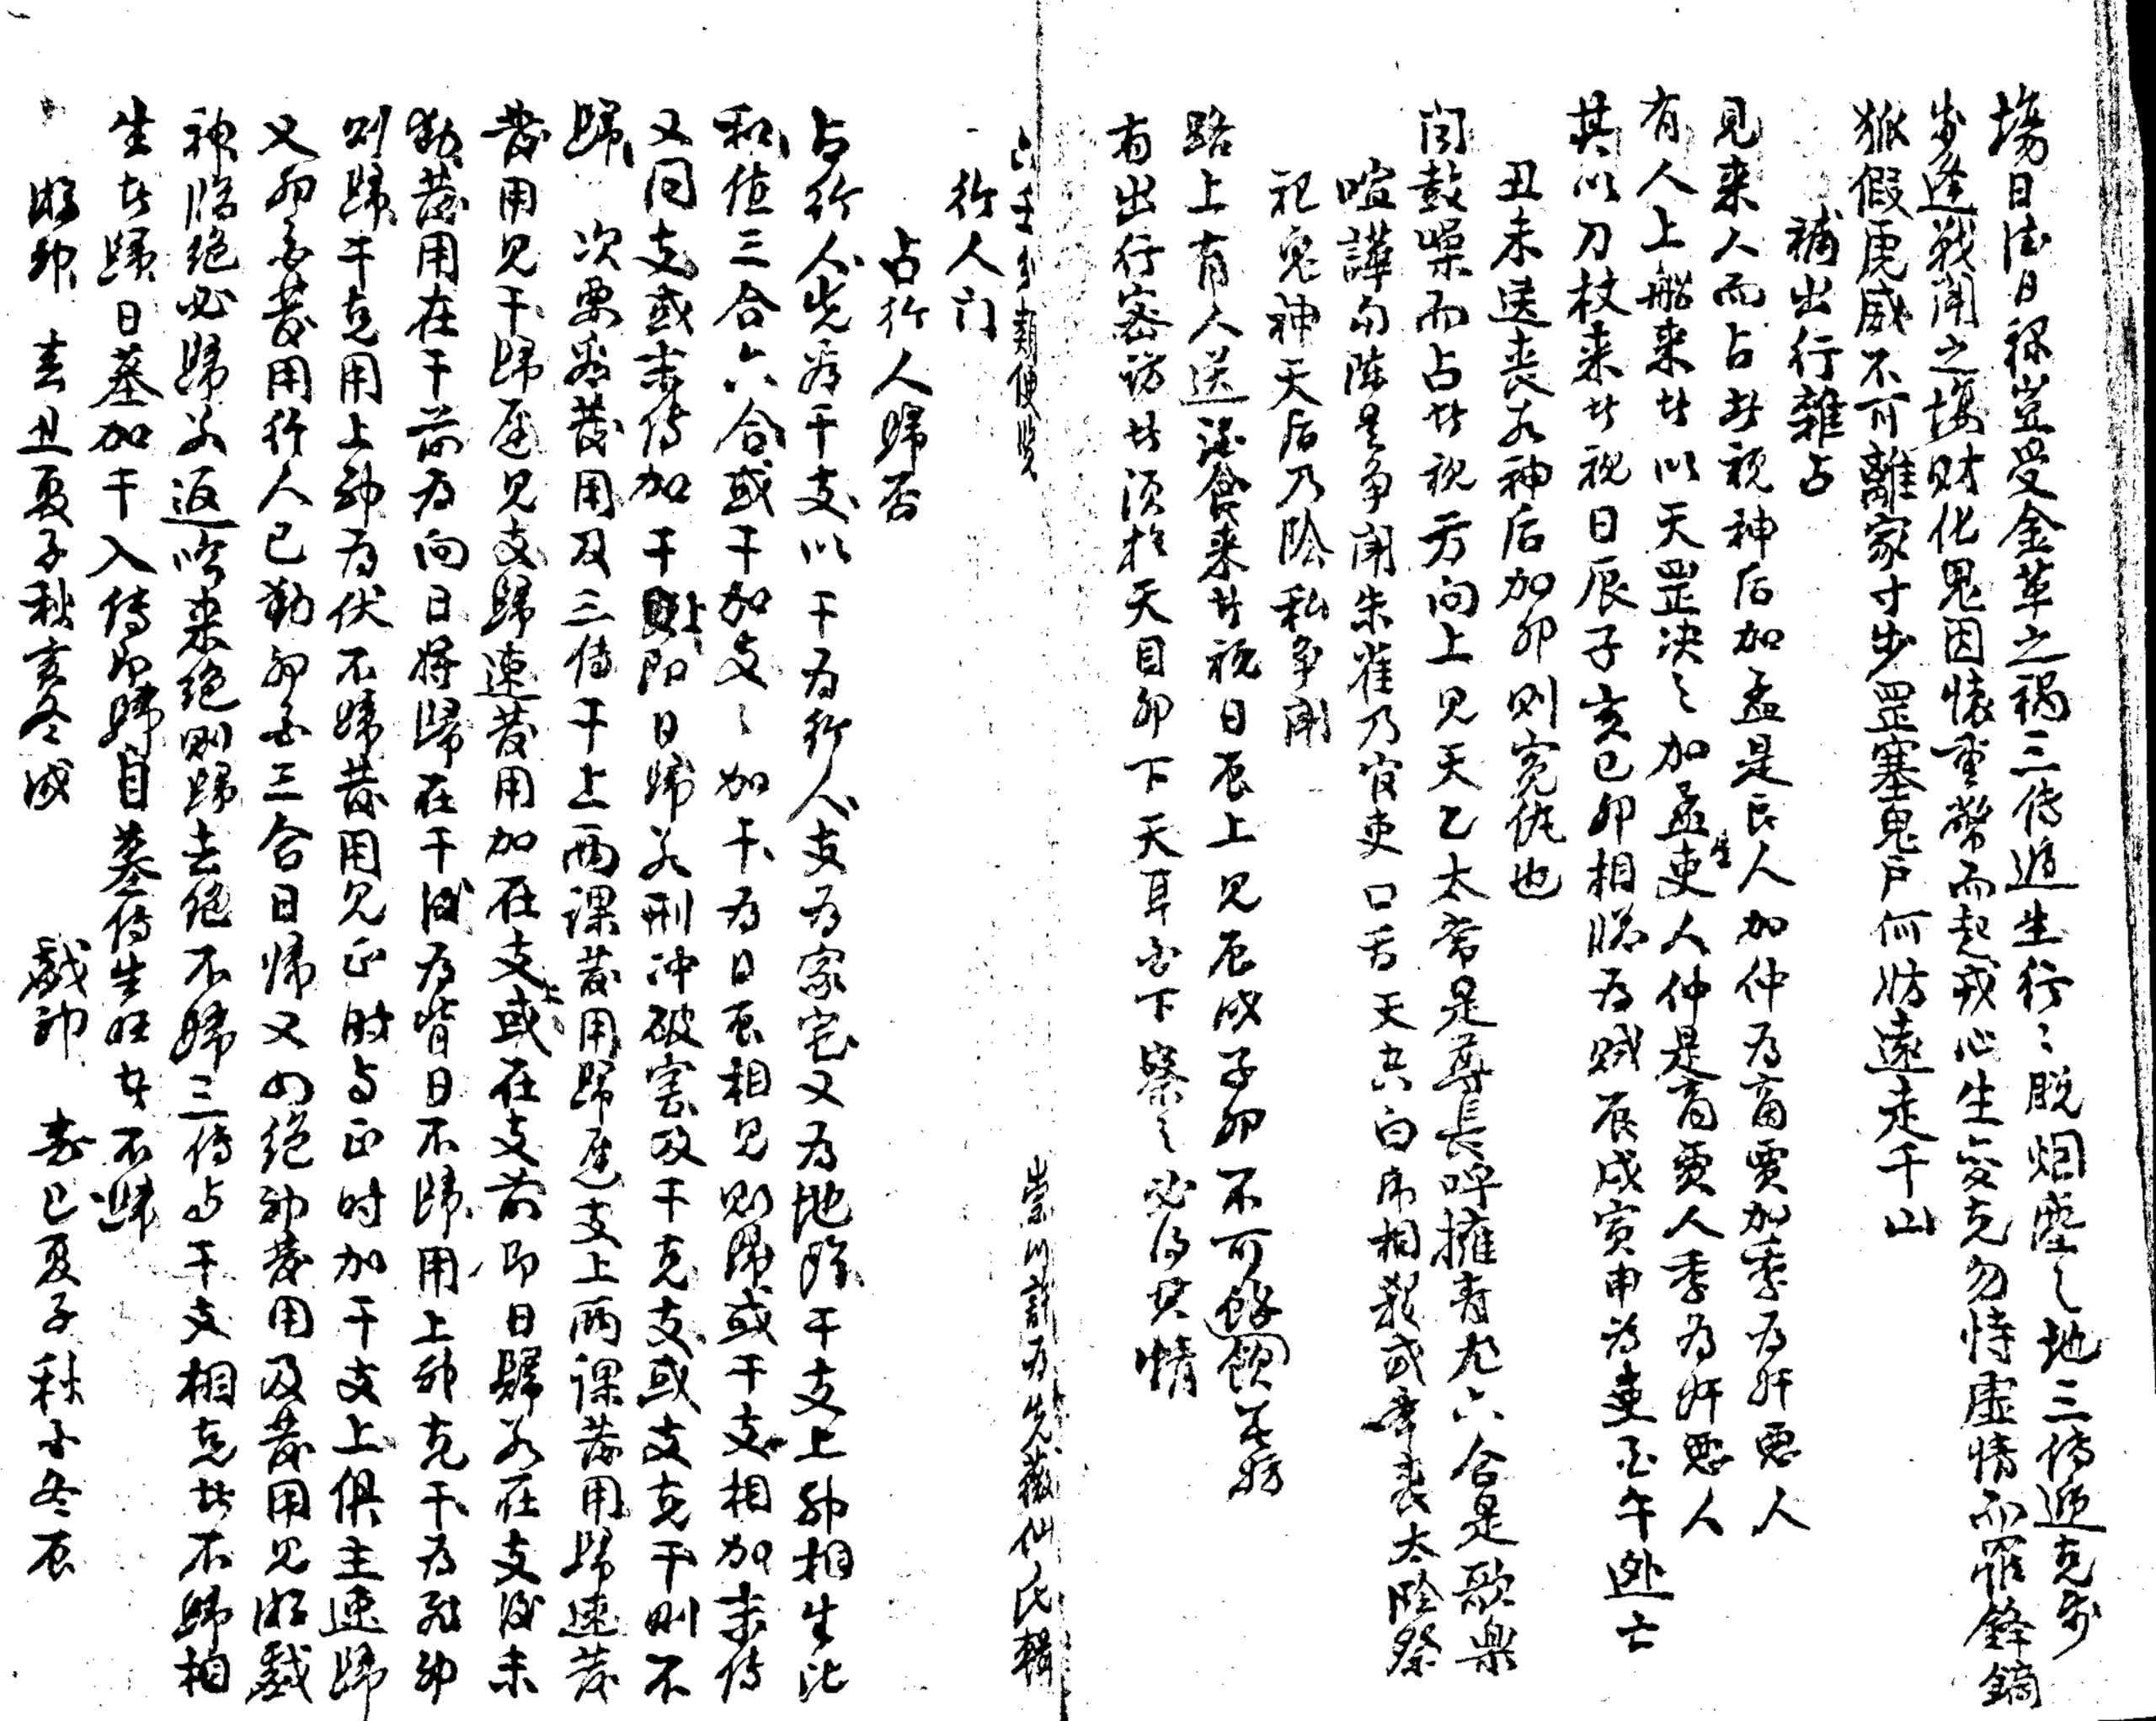 塲日德日祿豈受金革之禍三传遁生行〻脱烟塵之地三传遞克步
步逢戦鬪之塲财化鬼因懐重幣而起戎心生变克勿恃虚情而罹鋒鏑
狐假虎威不可離家寸步罡塞鬼戸何妨遠走千山
補出行雜占
見来人而占者視神后加孟是良人加仲为商賈加季为奸悪人
有人上船来者以天罡决之加孟生吏人仲是商賈人季为奸悪人
其以刀杖来者视日辰子亥巳卯相臨为贼辰戌寅申为吏酉午逃亡
丑未送丧若神后加卯则寃仇也
闻鼓噪而占者视方向上见天乙太常是尊長呼擁青龙六合是歌樂
喧譁勾陈是争闹朱雀乃官吏口舌天空白虎相殺或争丧太陰祭
祀鬼神天后乃陰私争鬧
路上有人送酒食来者視日辰上見辰戌子卯不可餘飲无妨
有出行密访者須於天目卯下天耳酉下察之必得其情
六壬分類便览
崇川 九先 仙氏輯
行人门
占行人歸否
占行人先看干支以干为行人支为家宅又为地頭干支上神相生比
和值三合六合或干加支〻加干为日辰相見则歸或干支相加末传
又同支或末传加干上即日歸若刑冲破害及干克支或支克干则不
歸 次要看發用及三传干上两課發用歸遲支上两課發用歸速發
發用见干歸遲见支歸速發用加在支上或在支前即日歸若在支後未
動發用在干前为向日将歸在干後为背日不歸用上神克干为飛神
则歸干克用上神为伏不歸發用见正时与正时加干支上俱主速歸
又卯酉發用行人已動卯酉三合日歸又四绝神發用及發用见游戲
神臨绝必歸若返吟来绝则歸去绝不歸三传与干支相克者不歸相
生者歸日墓加干入传即歸自墓传生旺者不歸
游神 春丑夏子秋亥冬戌 戲神 春巳夏子秋酉冬辰